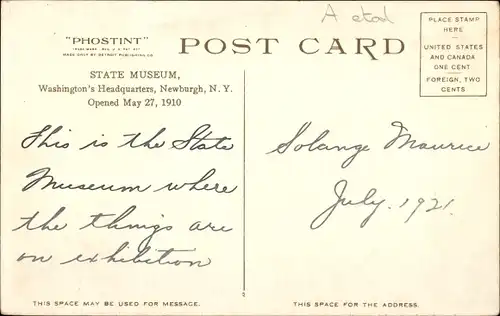 "PHOSTINT"
MADE ONLY BY DETROIT PUBLISHING CO.
POST CARD
PLACE STAMP
HERE
UNITED STATES
AND CANADA
ONE CENT
FOREIGN, TWO
CENTS
STATE MUSEUM,
Washington's Headquarters, Newburgh, N. Y.
Opened May 27, 1910
This is the State
Museum where
the things are
on exhibition
Solange Maurice
July. 1921.
THIS SPACE MAY BE USED FOR MESSAGE.
THIS SPACE FOR THE ADDRESS.